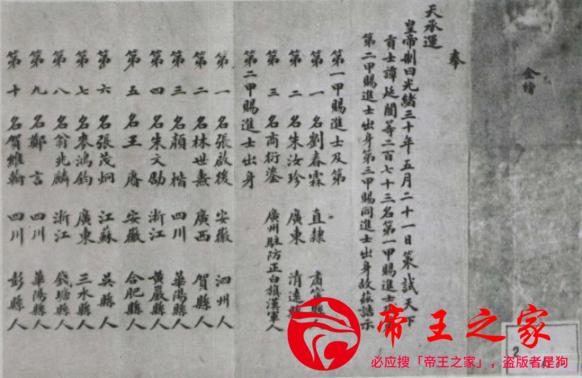 奉
天承運
皇帝制曰光緒三十年五月二十一日策試天下
貢士譚延闓等二百七十三名第一甲賜進士
第二甲賜進士出身第三甲賜同進士出身故茲誥示
第一甲賜進士及第
第一名劉春霖 直隸 肅
第二名朱汝珍 廣東 清遠
第三名商衍鎏 廣州駐防正白旗漢軍人
第二甲賜進士出身
第一名張啟後 安徽 泗州人
第二名林世燾 廣西 賀縣人
第三名顏楷 四川 華陽縣人
第四名朱文劭 浙江 黃巖縣人
第五名王賡 安徽 合肥縣人
第六名張茂炯 江蘇 吳縣人
第七名麥鴻鈞 廣東 三水縣人
第八名翁兆麟 浙江 錢塘縣人
第九名鄭言 四川 華陽縣人
第十名賀維翰 四川 彭縣人
帝王之家
必应搜「帝王之家」，盗版者是狗